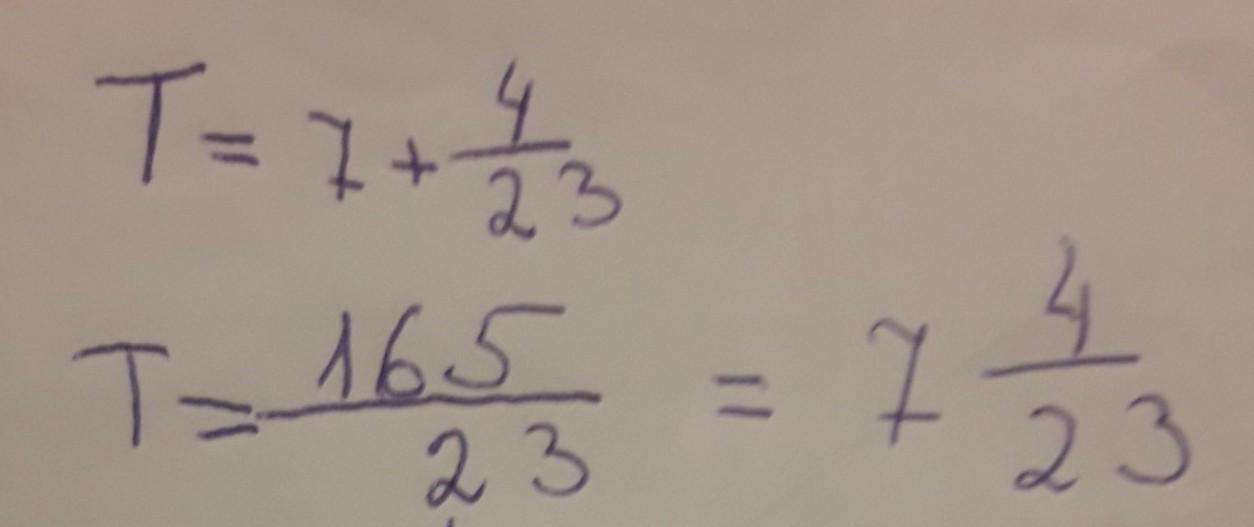 T = 7 + 4/23
T = 165/23 = 7 4/23